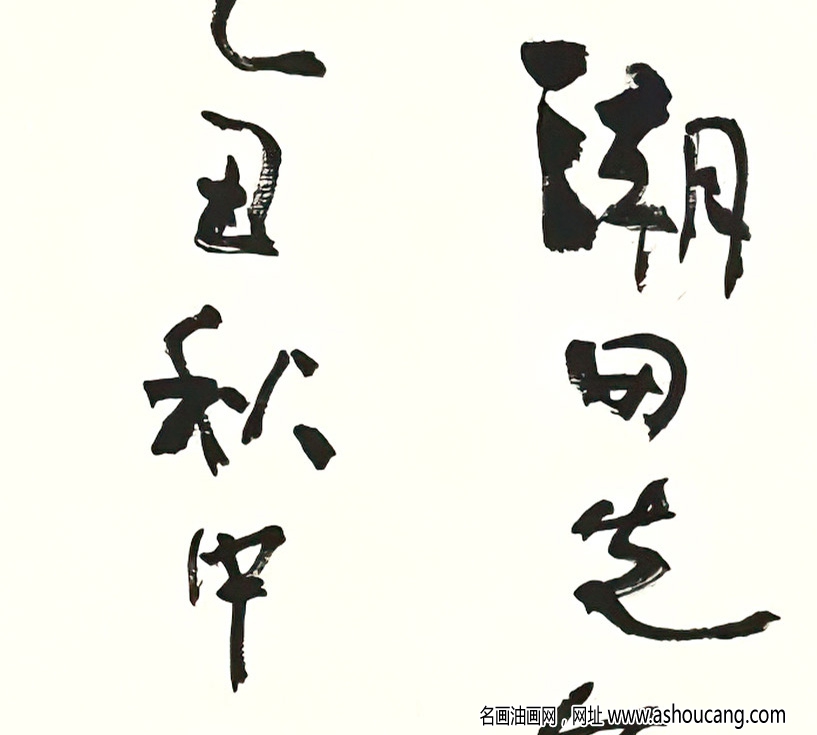 潮田先
丑秋中
名画油画网，网址 www.ashoucang.com